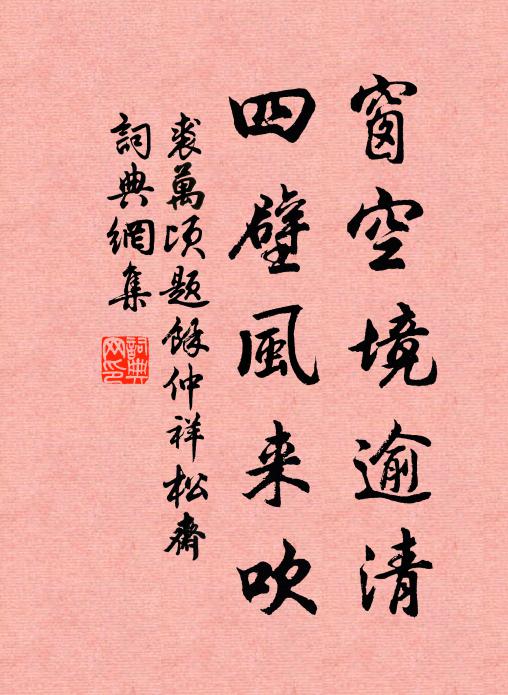 窗空境逾清
四壁風来吹
裘萬頃題餘仲祥松齋
詞典網集
詞典
网印